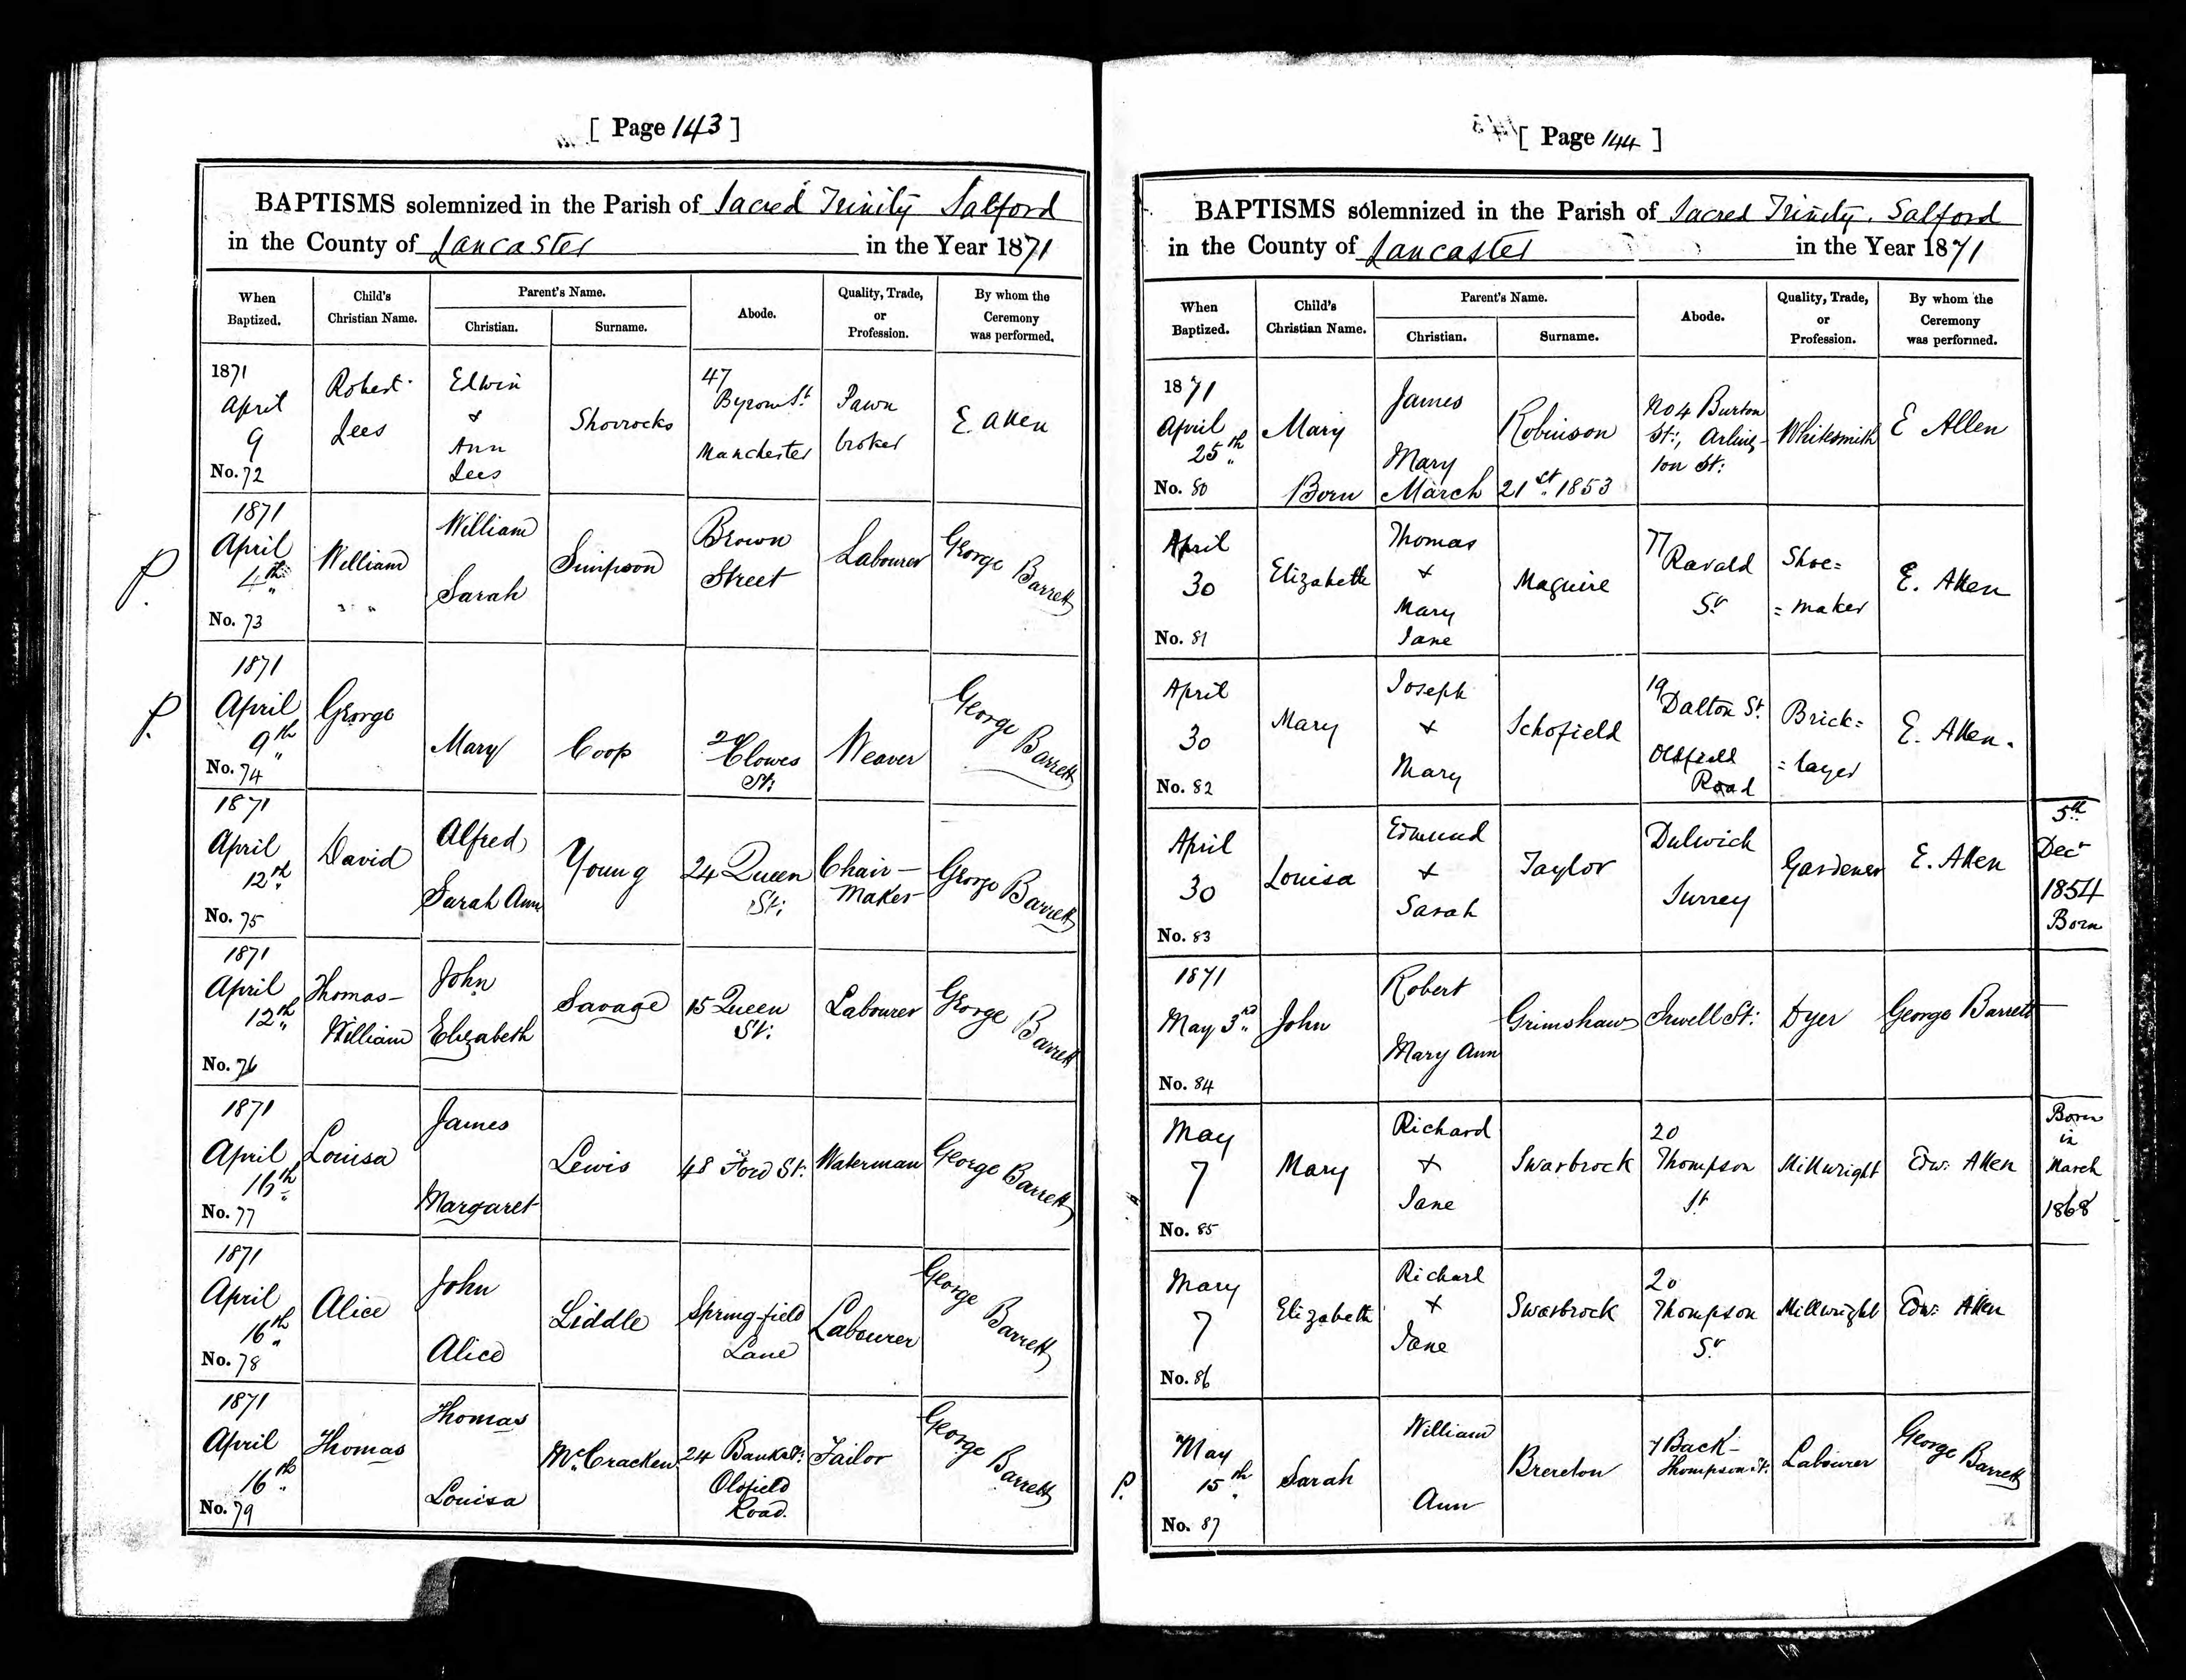 [ Page 143 ]
BAPTISMS solemnized in the Parish of Sacred Trinity Salford
in the County of Lancaster in the Year 1871
When Baptized.
Child's Christian Name.
Parent's Name.
Christian.
Surname.
Abode.
Quality, Trade, or Profession.
By whom the Ceremony was performed.
1871 April 9 No. 72 Robert Lees Edwin + Ann Lees Shorrocks 47 Byrom St. Manchester Pawn broker E. Allen
P. 1871 April 4th No. 73 William William Sarah Simpson Brown Street Labourer George Barrett
P. 1871 April 9th No. 74 George Mary Coop 20 Clowes St: Weaver George Barrett
1871 April 12th No. 75 David Alfred Sarah Ann Young 24 Queen St: Chair-Maker George Barrett
1871 April 12th No. 76 Thomas-William John Elizabeth Savage 15 Queen St: Labourer George Barrett
1871 April 16th No. 77 Louisa James Margaret Lewis 48 Ford St: Waterman George Barrett
1871 April 16th No. 78 Alice John Alice Liddle Spring-field Lane Labourer George Barrett
1871 April 16th No. 79 Thomas Thomas Louisa McCracken 24 Bank St: Oldfield Road. Tailor George Barrett
[ Page 144 ]
BAPTISMS solemnized in the Parish of Sacred Trinity. Salford
in the County of Lancaster in the Year 1871
When Baptized.
Child's Christian Name.
Parent's Name.
Christian.
Surname.
Abode.
Quality, Trade, or Profession.
By whom the Ceremony was performed.
1871 April 25th No. 80 Mary James Mary Robinson No 4 Burton St:, Arling-ton St: Whitesmith E Allen
Born March 21st 1853
April 30 No. 81 Elizabeth Thomas + Mary Jane Maguire 77 Ravald St Shoe= =maker E. Allen
April 30 No. 82 Mary Joseph + Mary Schofield 19 Dalton St. Oldfield Road Brick= =layer E. Allen.
April 30 No. 83 Louisa Edmund + Sarah Taylor Dulwich Surrey Gardener E. Allen 5th Decr 1854 Born
1871 May 3rd No. 84 John Robert Mary Ann Grimshaw Irwell St: Dyer George Barrett
May 7 No. 85 Mary Richard + Jane Swarbrock 20 Thompson St Millwright Edw: Allen Born in March 1868
Mary 7 No. 86 Elizabeth Richard + Jane Swarbrock 20 Thompson St Millwright Edw: Allen
P. May 15th No. 87 Sarah William Ann Brereton 7 Back-Thompson St. Labourer George Barrett